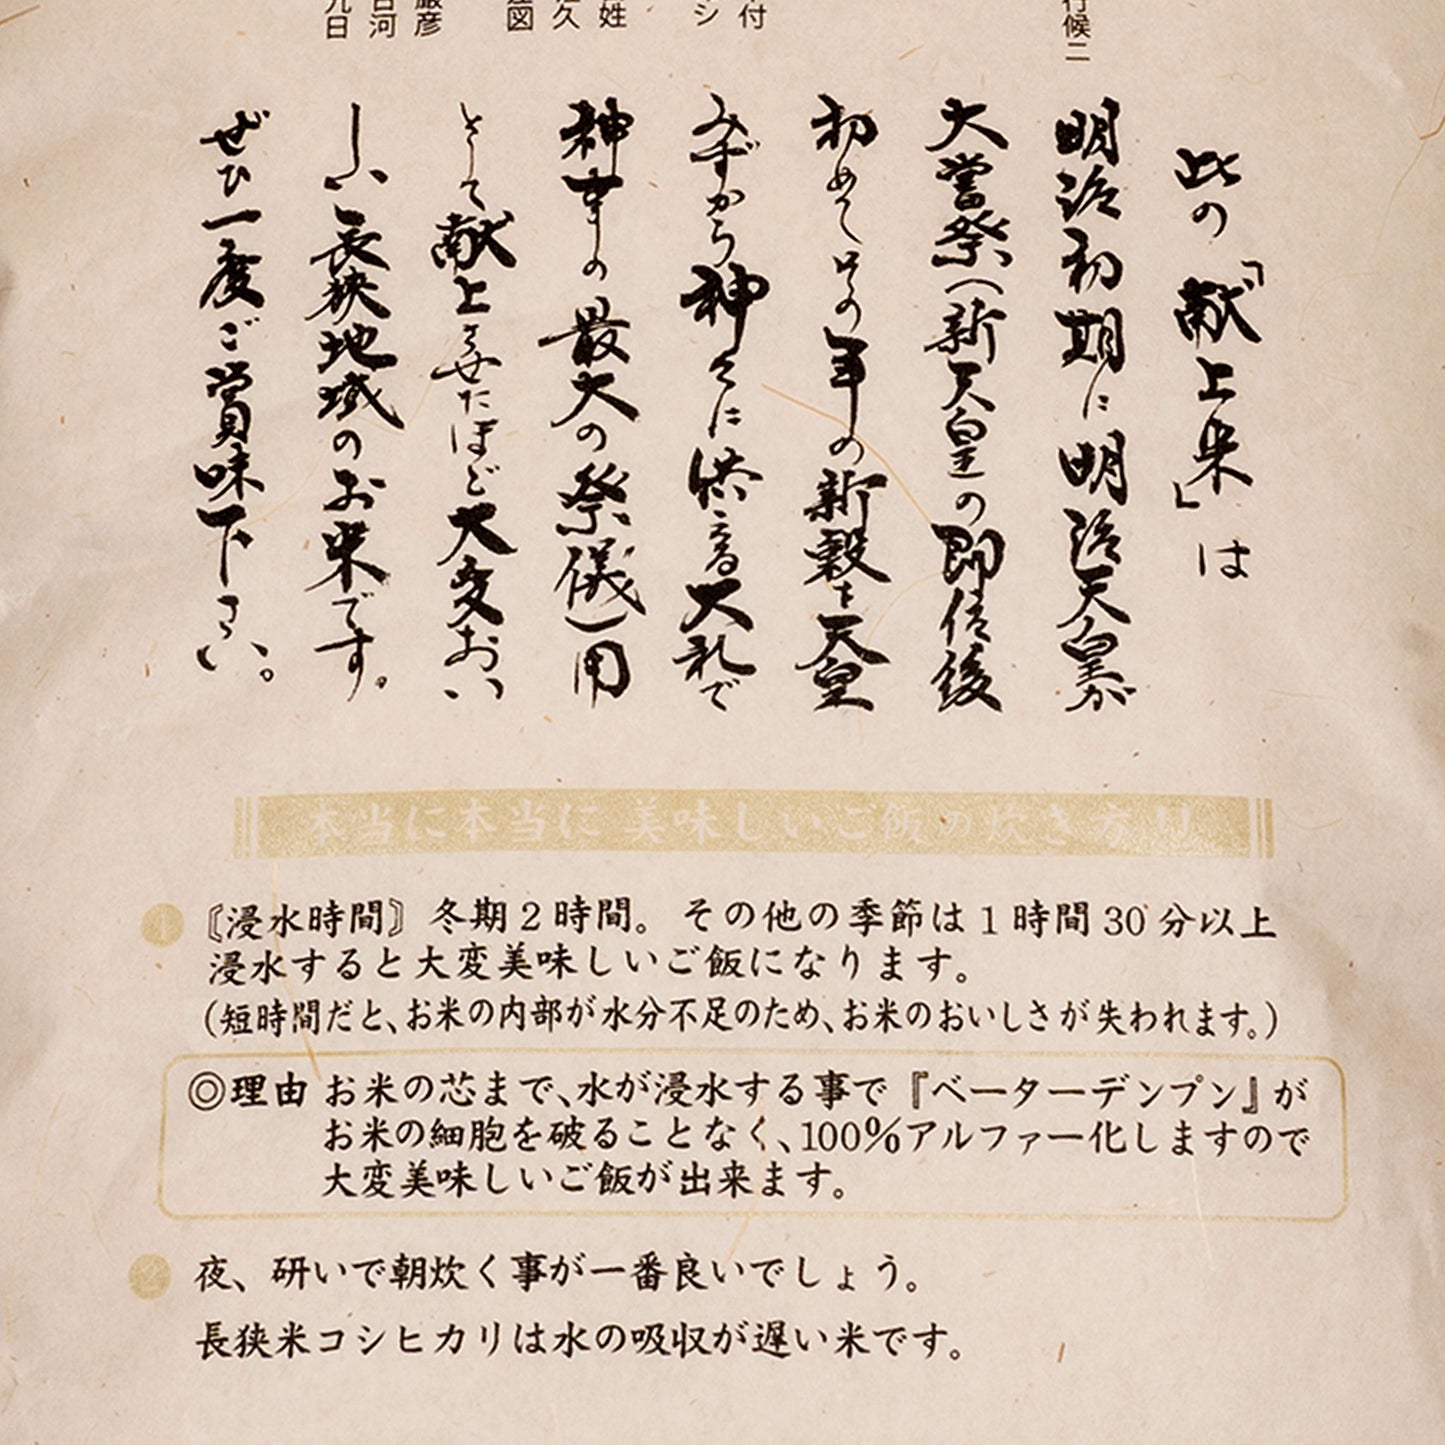 行候ニ
付
シ
姓
久
図
厳彦
河
九日
此の「献上米」は
明治初期に明治天皇が
大嘗祭(新天皇の即位後
初めてその年の新穀を天皇
みずから神々に供える大礼で
神事の最大の祭儀)用
として献上させたほど大変おい
しい長狭地域のお米です。
ぜひ一度ご賞味下さい。
本当に本当に美味しいご飯の炊き方!!
1 〘浸水時間〙 冬期2時間。 その他の季節は1時間30分以上
浸水すると大変美味しいご飯になります。
(短時間だと、お米の内部が水分不足のため、お米のおいしさが失われます。)
◎理由 お米の芯まで、水が浸水する事で『ベーターデンプン』が
お米の細胞を破ることなく、100%アルファー化しますので
大変美味しいご飯が出来ます。
2 夜、研いで朝炊く事が一番良いでしょう。
長狭米コシヒカリは水の吸収が遅い米です。